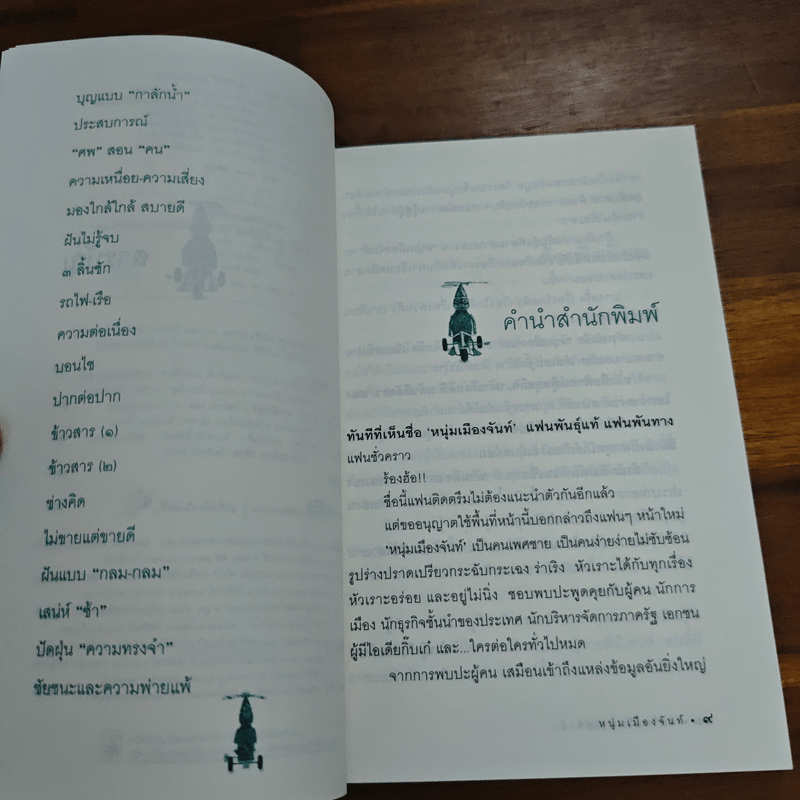 บุญแบบ “กาลักน้ำ”
ประสบการณ์
“ศพ” สอน “คน”
ความเหนื่อย-ความเสี่ยง
มองใกล้ใกล้ สบายดี
ฝันไม่รู้จบ
๓ ลิ้นชัก
รถไฟ-เรือ
ความต่อเนื่อง
บอนไซ
ปากต่อปาก
ข้าวสาร (๑)
ข้าวสาร (๒)
ช่างคิด
ไม่ขายแต่ขายดี
ฝันแบบ “กลม-กลม”
เสน่ห์ “ช้า”
ปัดฝุ่น “ความทรงจำ”
ชัยชนะและความพ่ายแพ้
คำนำสำนักพิมพ์
ทันทีที่เห็นชื่อ ‘หนุ่มเมืองจันท์’ แฟนพันธุ์แท้ แฟนพันทาง
แฟนชั่วคราว
ร้องฮ้อ!!
ชื่อนี้แฟนติดตรึมไม่ต้องแนะนำตัวกันอีกแล้ว
แต่ขออนุญาตใช้พื้นที่หน้านี้บอกกล่าวถึงแฟนๆ หน้าใหม่
‘หนุ่มเมืองจันท์’ เป็นคนเพศชาย เป็นคนง่ายง่ายไม่ซับซ้อน
รูปร่างปราดเปรียวกระฉับกระเฉง ร่าเริง หัวเราะได้กับทุกเรื่อง
หัวเราะอร่อย และอยู่ไม่นิ่ง ชอบพบปะพูดคุยกับผู้คน นักการ
เมือง นักธุรกิจชั้นนำของประเทศ นักบริหารจัดการภาครัฐ เอกชน
ผู้มีไอเดียกิ๊บเก๋ และ...ใครต่อใครทั่วไปหมด
จากการพบปะผู้คน เสมือนเข้าถึงแหล่งข้อมูลอันยิ่งใหญ่
หนุ่มเมืองจันท์ • ๙